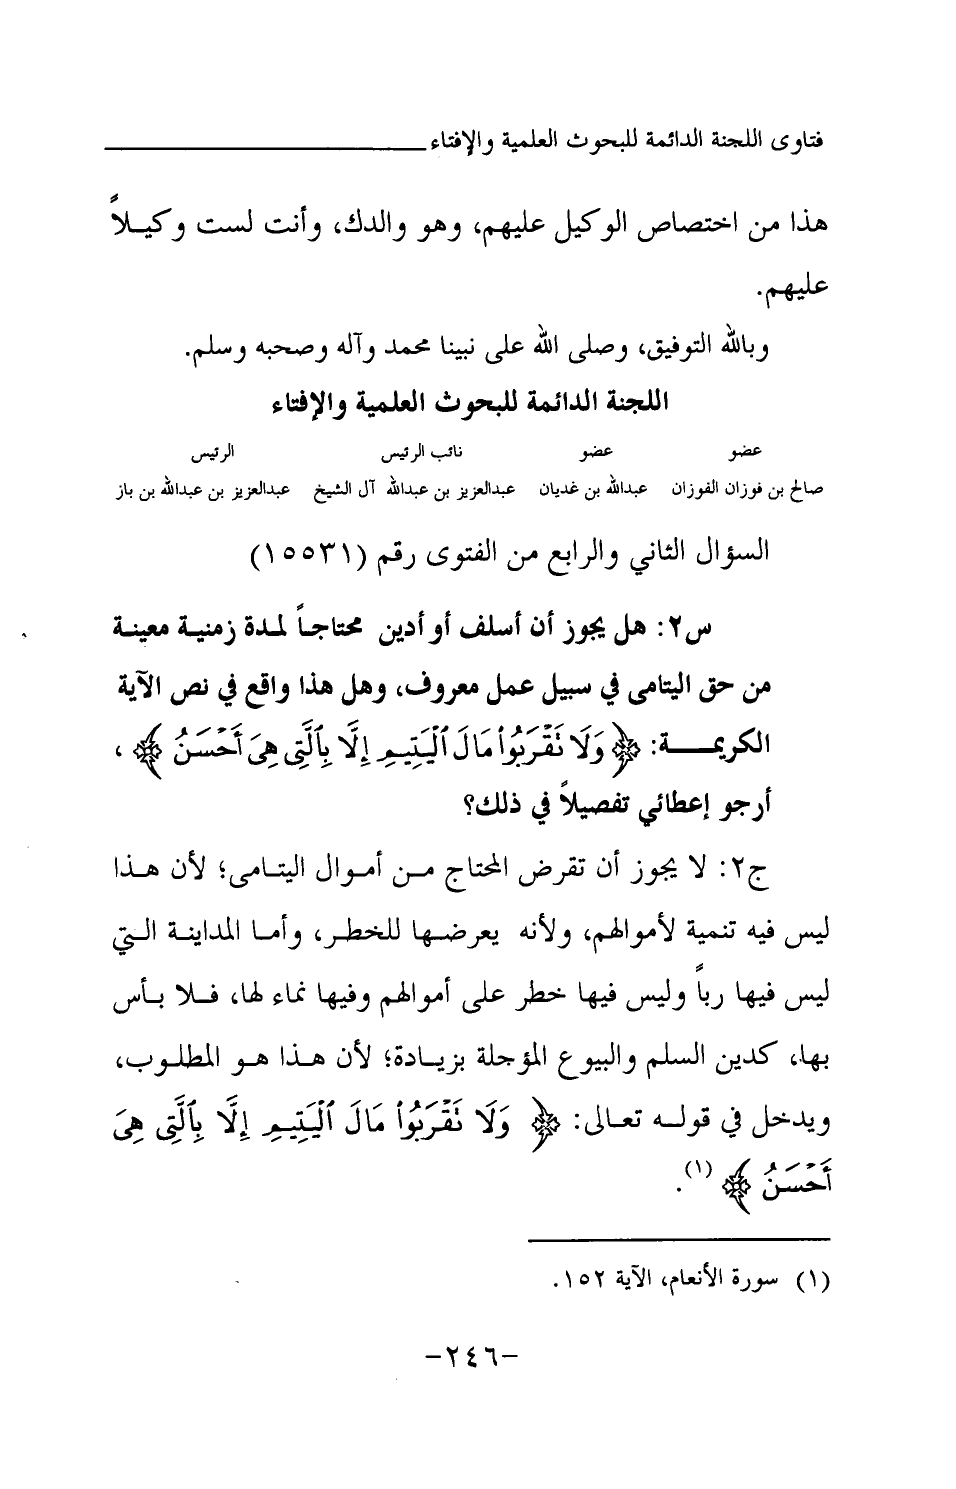 فتاوى اللجنة الدائمة للبحوث العلمية والإفتاء
هذا من اختصاص الوكيل عليهم، وهو والدك، وأنت لست وكيلاً
عليهم.
وبالله التوفيق، وصلى الله على نبينا محمد وآله وصحبه وسلم.
اللجنة الدائمة للبحوث العلمية والإفتاء
عضو عضو نائب الرئيس الرئيس
صالح بن فوزان الفوزان عبدالله بن غديان عبدالعزيز بن عبدالله آل الشيخ عبدالعزيز بن عبدالله بن باز
السؤال الثاني والرابع من الفتوى رقم (١٥٥٣١)
س٢: هل يجوز أن أسلف أو أدين محتاجاً لمدة زمنية معينة
من حق اليتامى في سبيل عمل معروف، وهل هذا واقع في نص الآية
الكريمـــة: ﴿ وَلَا تَقْرَبُوا۟ مَالَ ٱلْيَتِيمِ إِلَّا بِٱلَّتِى هِىَ أَحْسَنُ ﴾،
أرجو إعطائي تفصيلاً في ذلك؟
ج٢: لا يجوز أن تقرض المحتاج من أموال اليتامى؛ لأن هذا
ليس فيه تنمية لأموالهم، ولأنه يعرضها للخطر، وأما المداينة التي
ليس فيها رباً وليس فيها خطر على أموالهم وفيها نماء لها، فلا بأس
بها، كدين السلم والبيوع المؤجلة بزيادة؛ لأن هذا هو المطلوب،
ويدخل في قوله تعالى: ﴿ وَلَا تَقْرَبُوا۟ مَالَ ٱلْيَتِيمِ إِلَّا بِٱلَّتِى هِىَ
أَحْسَنُ ﴾ (١).
(١) سورة الأنعام، الآية ١٥٢.
-٢٤٦-